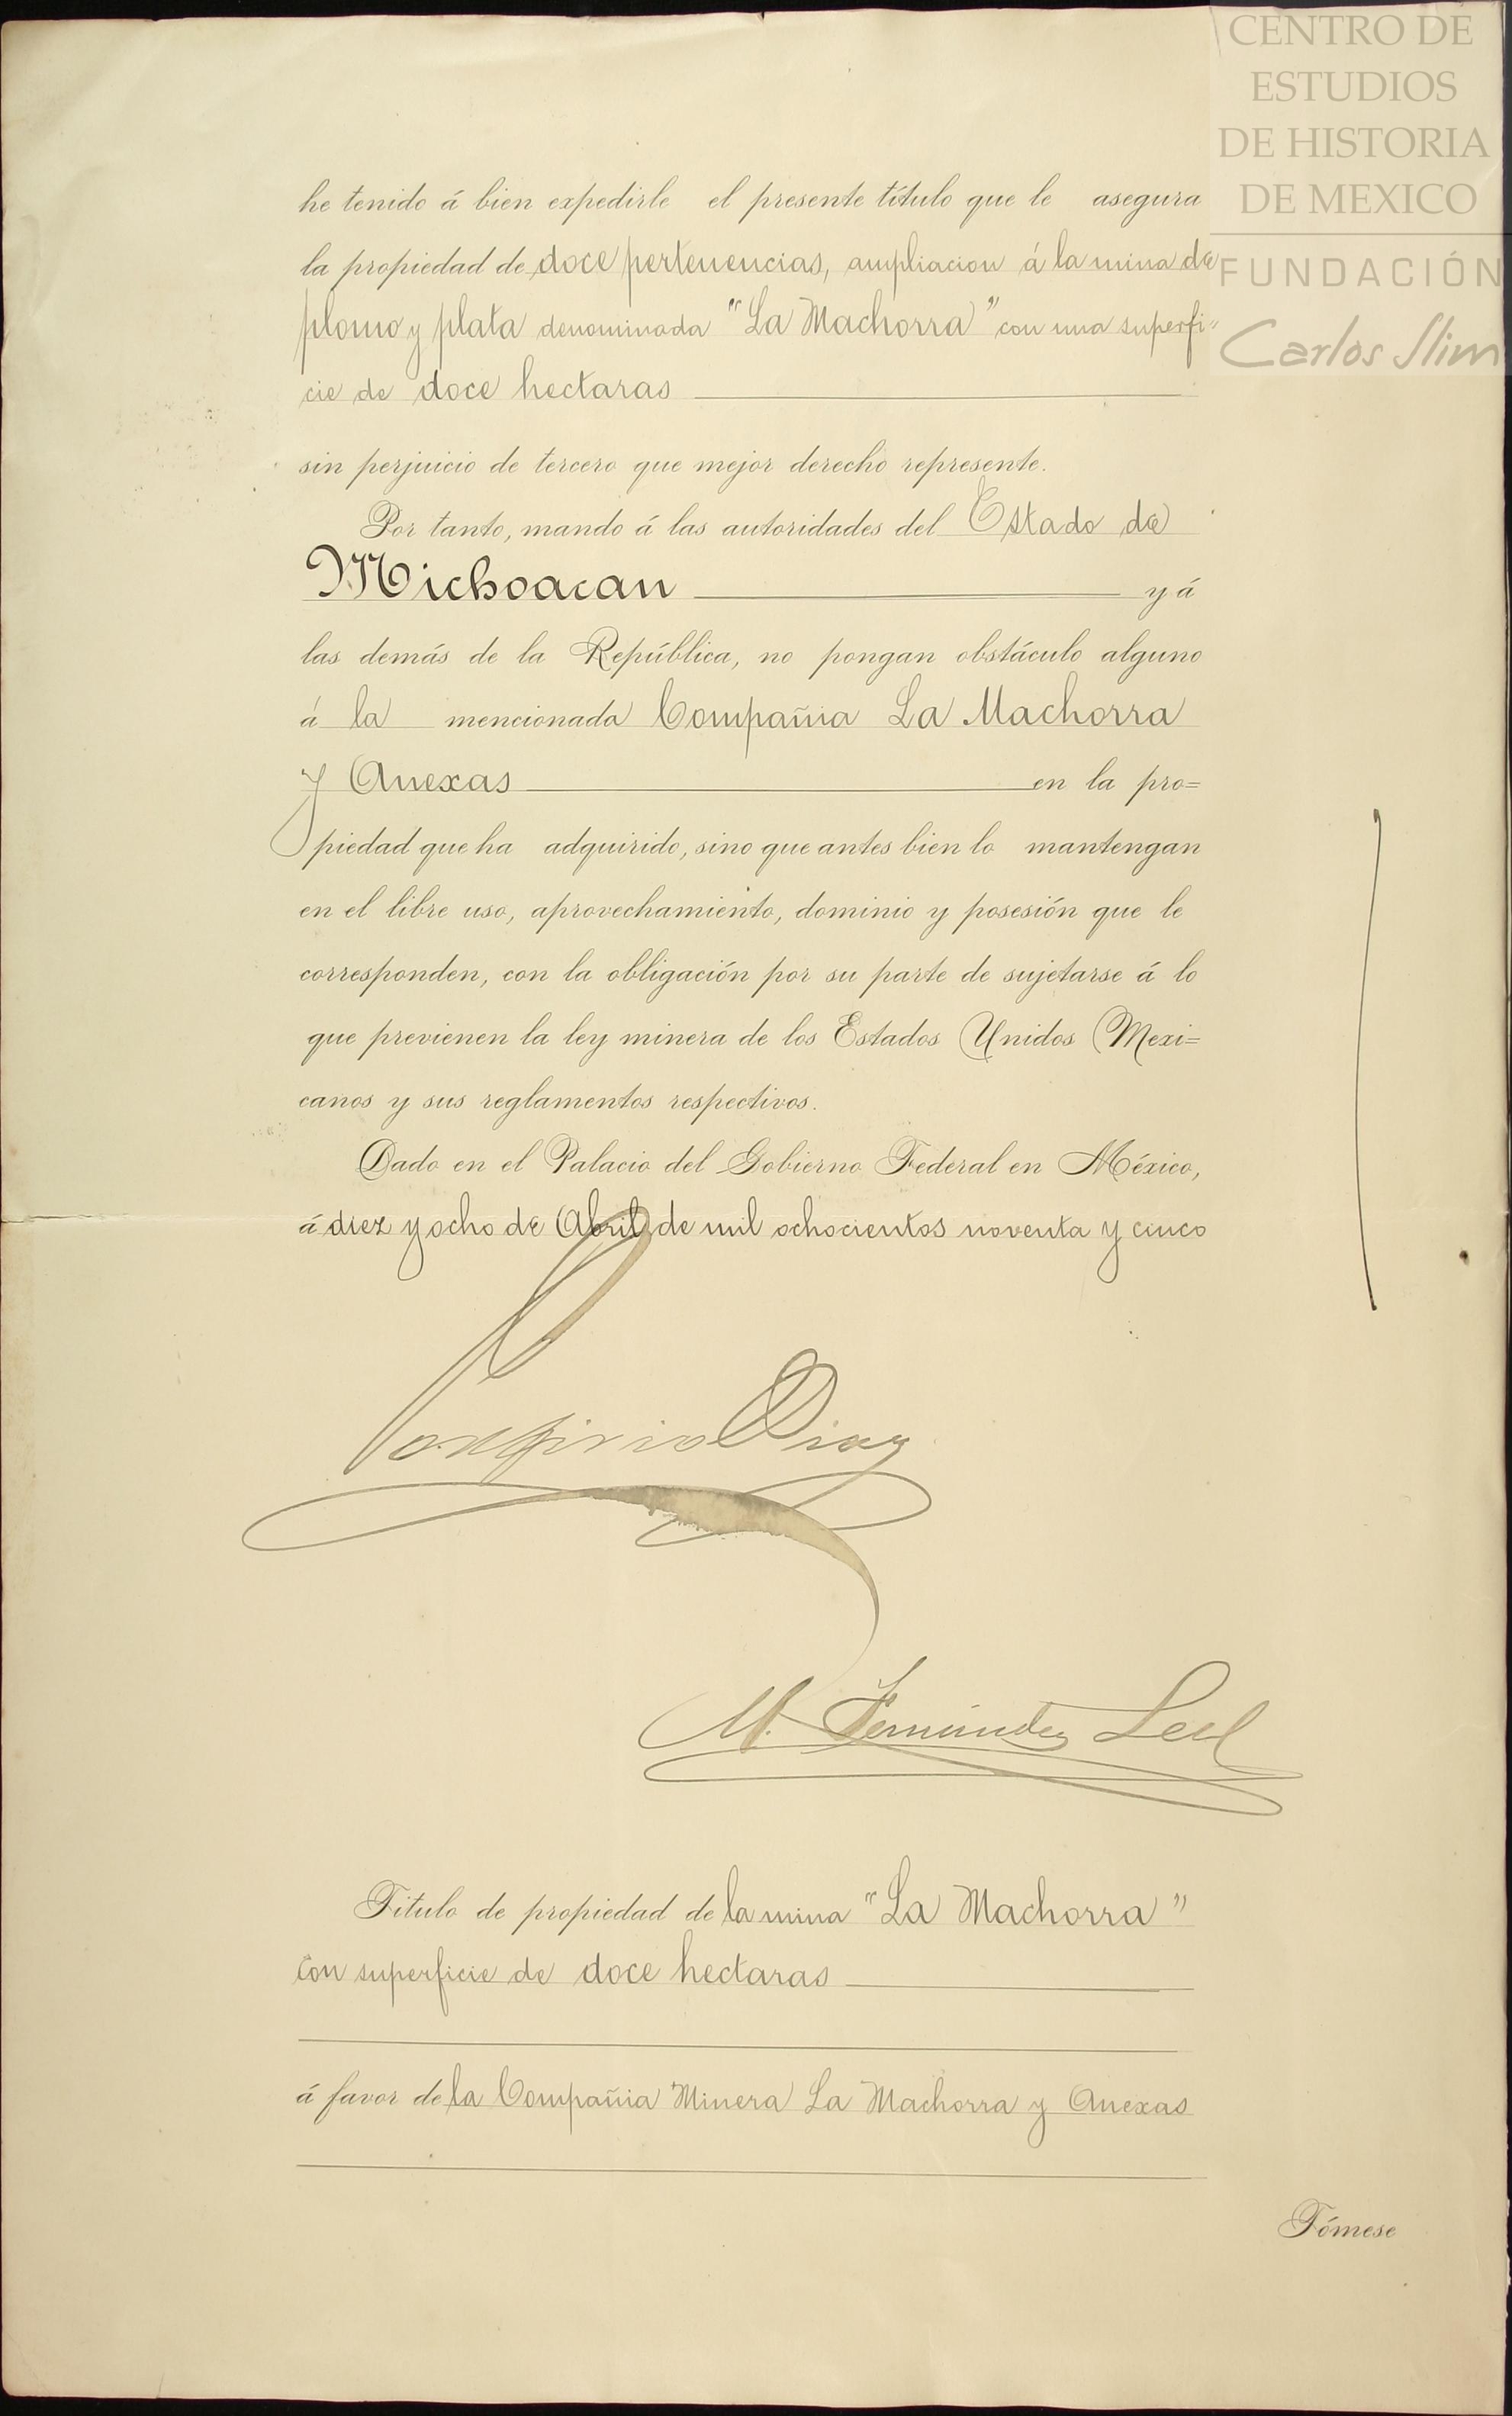 CENTRO DE
ESTUDIOS
DE HISTORIA
DE MEXICO
FUNDACIÓN
Carlos Slim
he tenido á bien expedirle el presente título que le asegura
la propiedad de doce pertenencias, ampliacion á la mina de
plomo y plata denominada "La Machorra" con una superfi-
cie de doce hectaras
sin perjuicio de tercero que mejor derecho represente.
Por tanto, mando á las autoridades del Estado de
Michoacan y á
las demás de la República, no pongan obstáculo alguno
á la mencionada Compañia La Machorra
y Anexas en la pro=
piedad que ha adquirido, sino que antes bien lo mantengan
en el libre uso, aprovechamiento, dominio y posesión que le
corresponden, con la obligación por su parte de sujetarse á lo
que previenen la ley minera de los Estados Unidos Mexi=
canos y sus reglamentos respectivos.
Dado en el Palacio del Gobierno Federal en México,
á diez y ocho de Abril de mil ochocientos noventa y cinco
Porfirio Diaz
M. Fernández Leal
Titulo de propiedad de la mina "La Machorra"
con superficie de doce hectaras
á favor de la Compañia Minera La Machorra y Anexas
Tómese